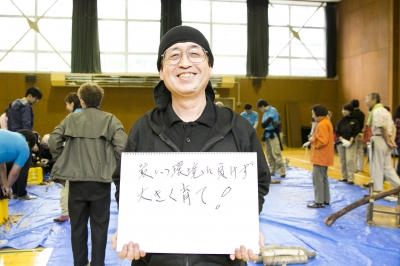 厳しい環境に負けず
大きく育て!